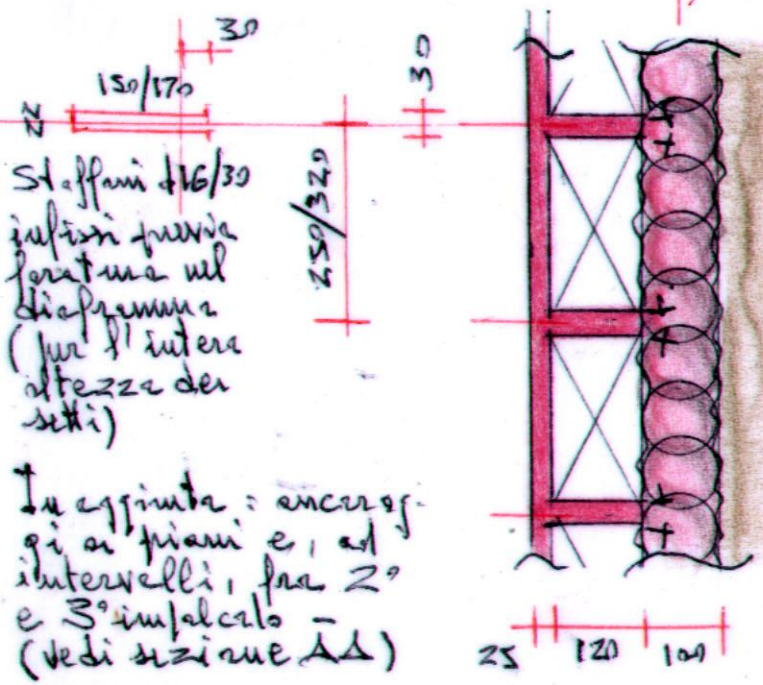 30
150/170
30
22
Staffoni ϕ16/30
infissi previa
foratura nel
diaframma
(per l'intera
altezza dei
setti)
250/320
In aggiunta : ancorag-
gi ai piani e, ad
intervalli, fra 2°
e 3° impalcato -
(vedi sezione AA)
25 120 100